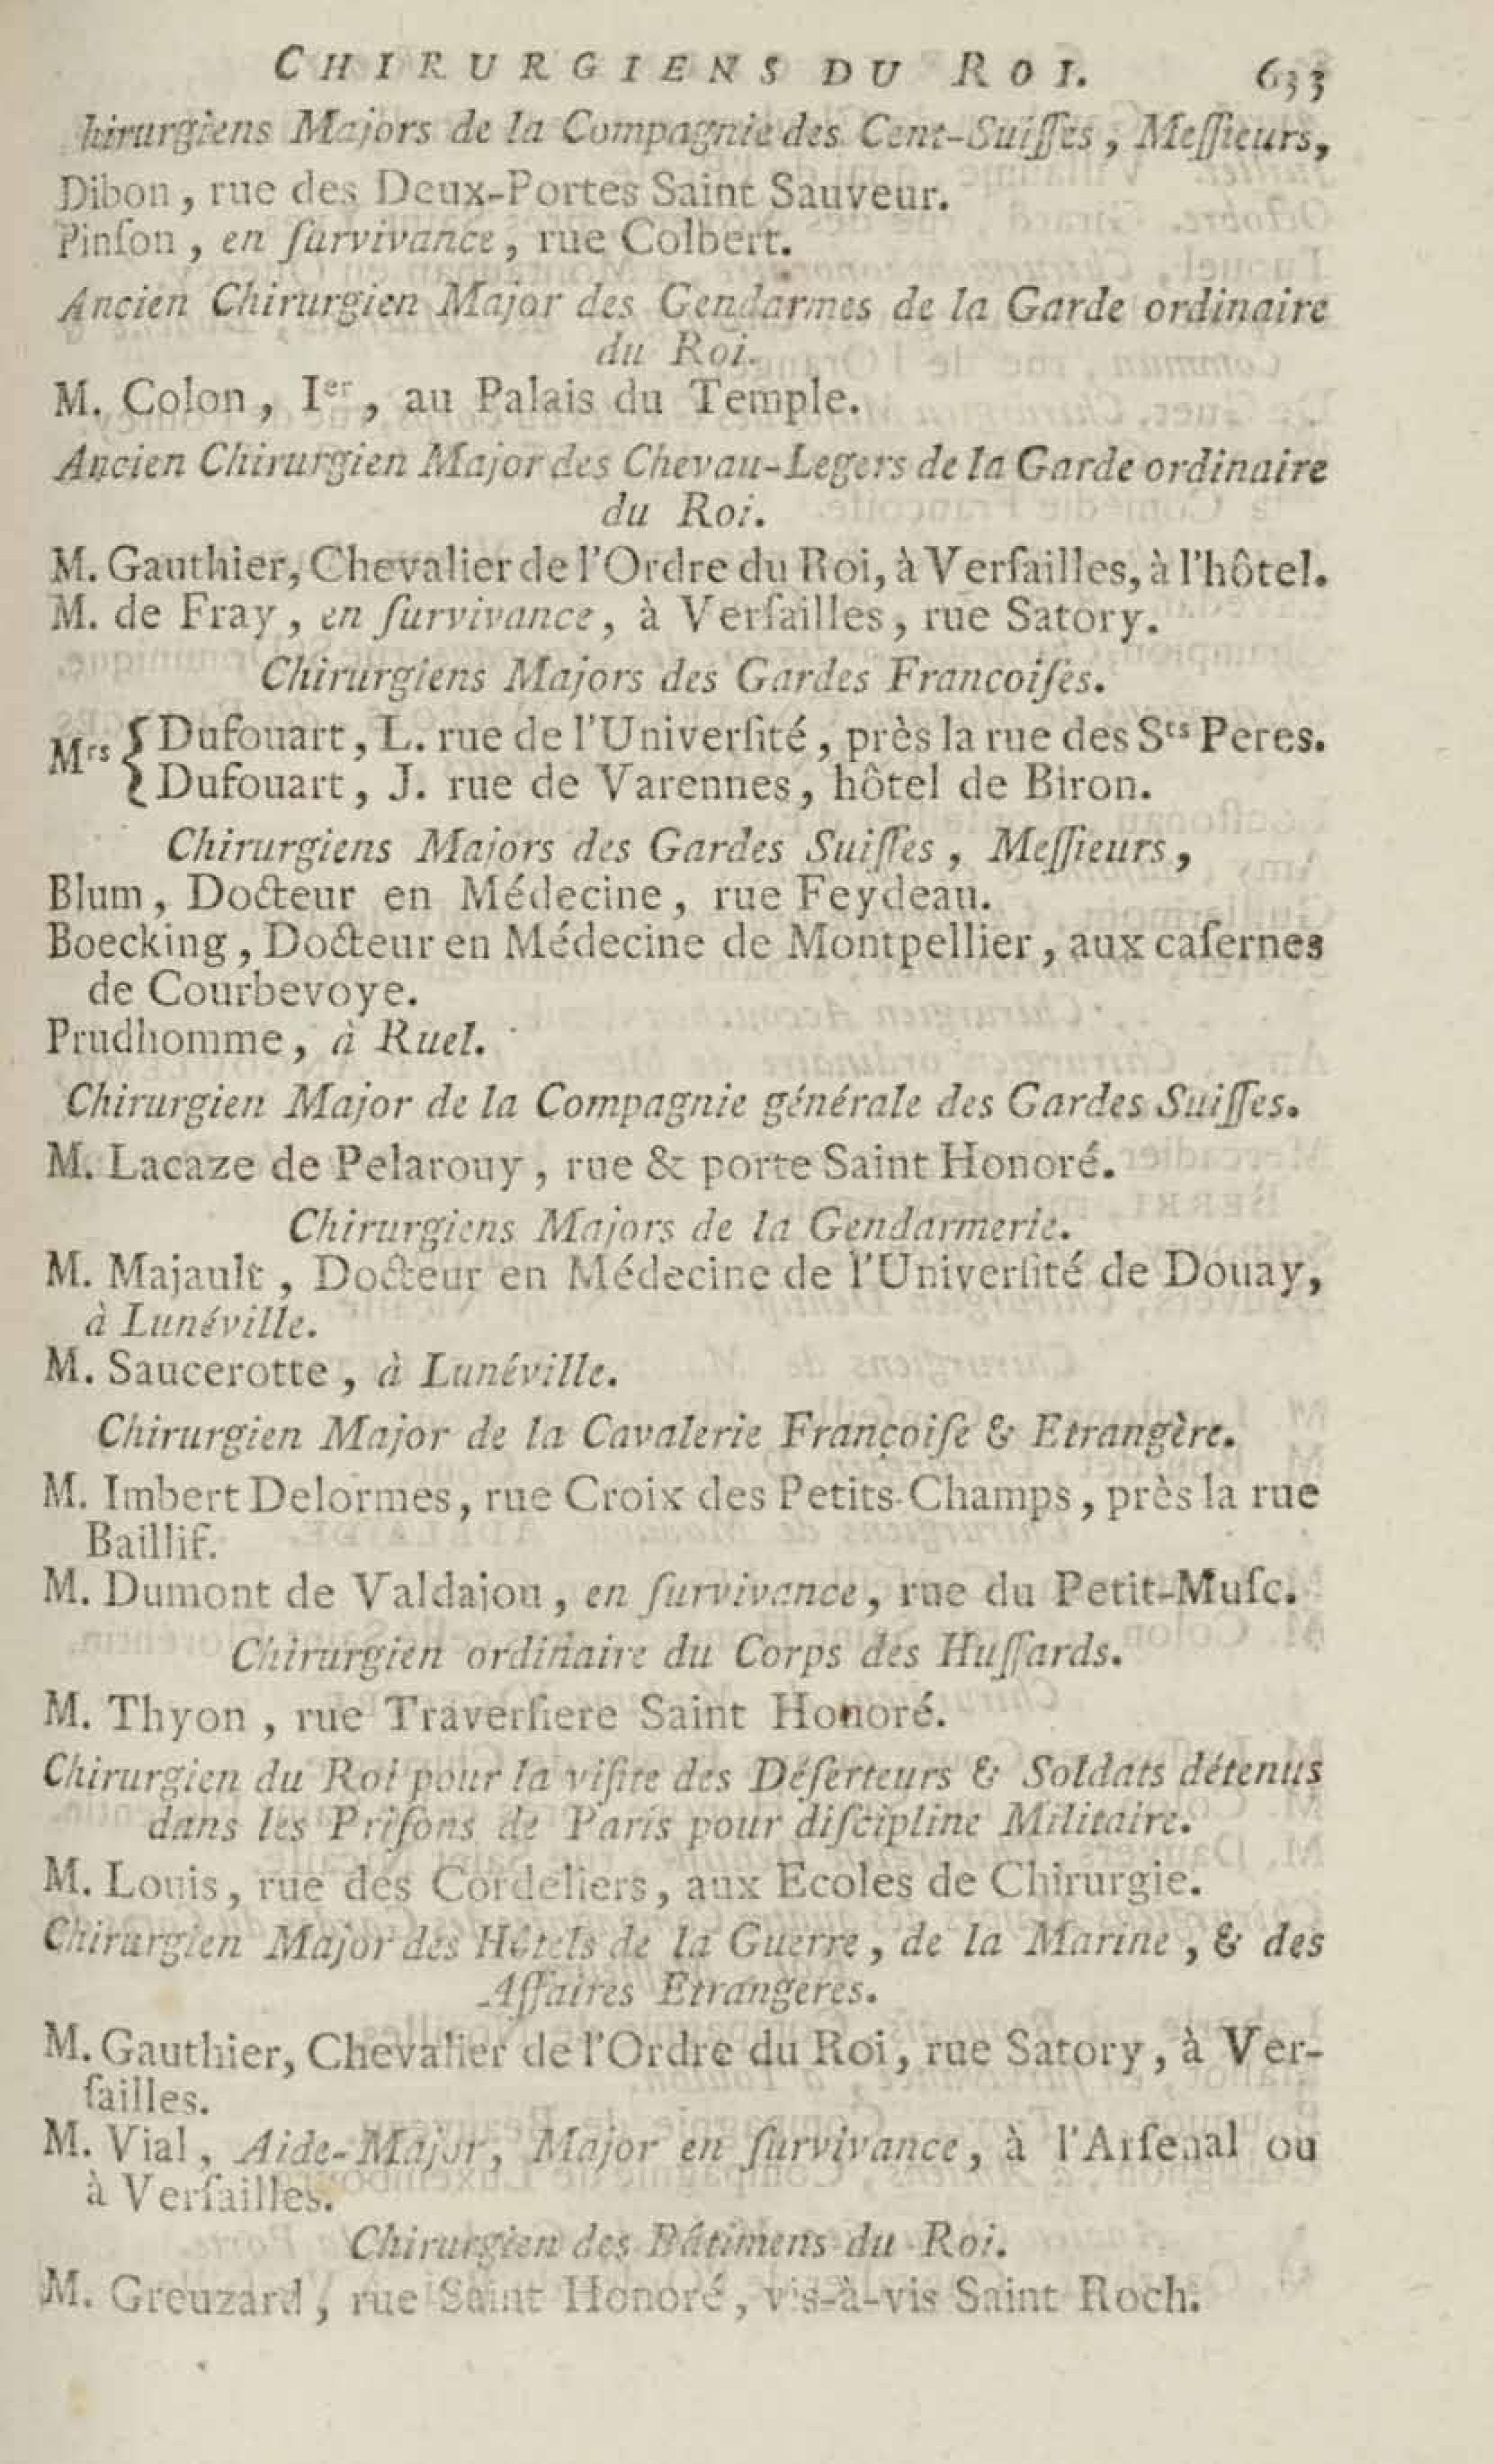 CHIRURGIENS DU ROI. 633
hirurgiens Majors de la Compagnie des Cent-Suiſſes, Meſſieurs,
Dibon, rue des Deux-Portes Saint Sauveur.
Pinſon, en ſurvivance, rue Colbert.
Ancien Chirurgien Major des Gendarmes de la Garde ordinaire
du Roi.
M. Colon, Ier, au Palais du Temple.
Ancien Chirurgien Major des Chevau-Legers de la Garde ordinaire
du Roi.
M. Gauthier, Chevalier de l'Ordre du Roi, à Verſailles, à l'hôtel.
M. de Fray, en ſurvivance, à Verſailles, rue Satory.
Chirurgiens Majors des Gardes Francoiſes.
Mrs { Dufouart, L. rue de l'Univerſité, près la rue des Sts Peres.
Dufouart, J. rue de Varennes, hôtel de Biron.
Chirurgiens Majors des Gardes Suiſſes, Meſſieurs,
Blum, Docteur en Médecine, rue Feydeau.
Boecking, Docteur en Médecine de Montpellier, aux caſernes
de Courbevoye.
Prudhomme, à Ruel.
Chirurgien Major de la Compagnie générale des Gardes Suiſſes.
M. Lacaze de Pelarouy, rue & porte Saint Honoré.
Chirurgiens Majors de la Gendarmerie.
M. Majault, Docteur en Médecine de l'Univerſité de Douay,
à Lunéville.
M. Saucerotte, à Lunéville.
Chirurgien Major de la Cavalerie Françoiſe & Etrangère.
M. Imbert Delormes, rue Croix des Petits-Champs, près la rue
Baillif.
M. Dumont de Valdajou, en ſurvivance, rue du Petit-Muſc.
Chirurgien ordinaire du Corps des Huſſards.
M. Thyon, rue Traverſiere Saint Honoré.
Chirurgien du Roi pour la viſite des Déſerteurs & Soldats détenus
dans les Priſons de Paris pour diſcipline Militaire.
M. Louis, rue des Cordeliers, aux Ecoles de Chirurgie.
Chirurgien Major des Hôtels de la Guerre, de la Marine, & des
Affaires Etrangeres.
M. Gauthier, Chevalier de l'Ordre du Roi, rue Satory, à Ver-
ſailles.
M. Vial, Aide-Major, Major en ſurvivance, à l'Arſenal ou
à Verſailles.
Chirurgien des Bâtimens du Roi.
M. Greuzard, rue Saint Honoré, vis-à-vis Saint Roch.